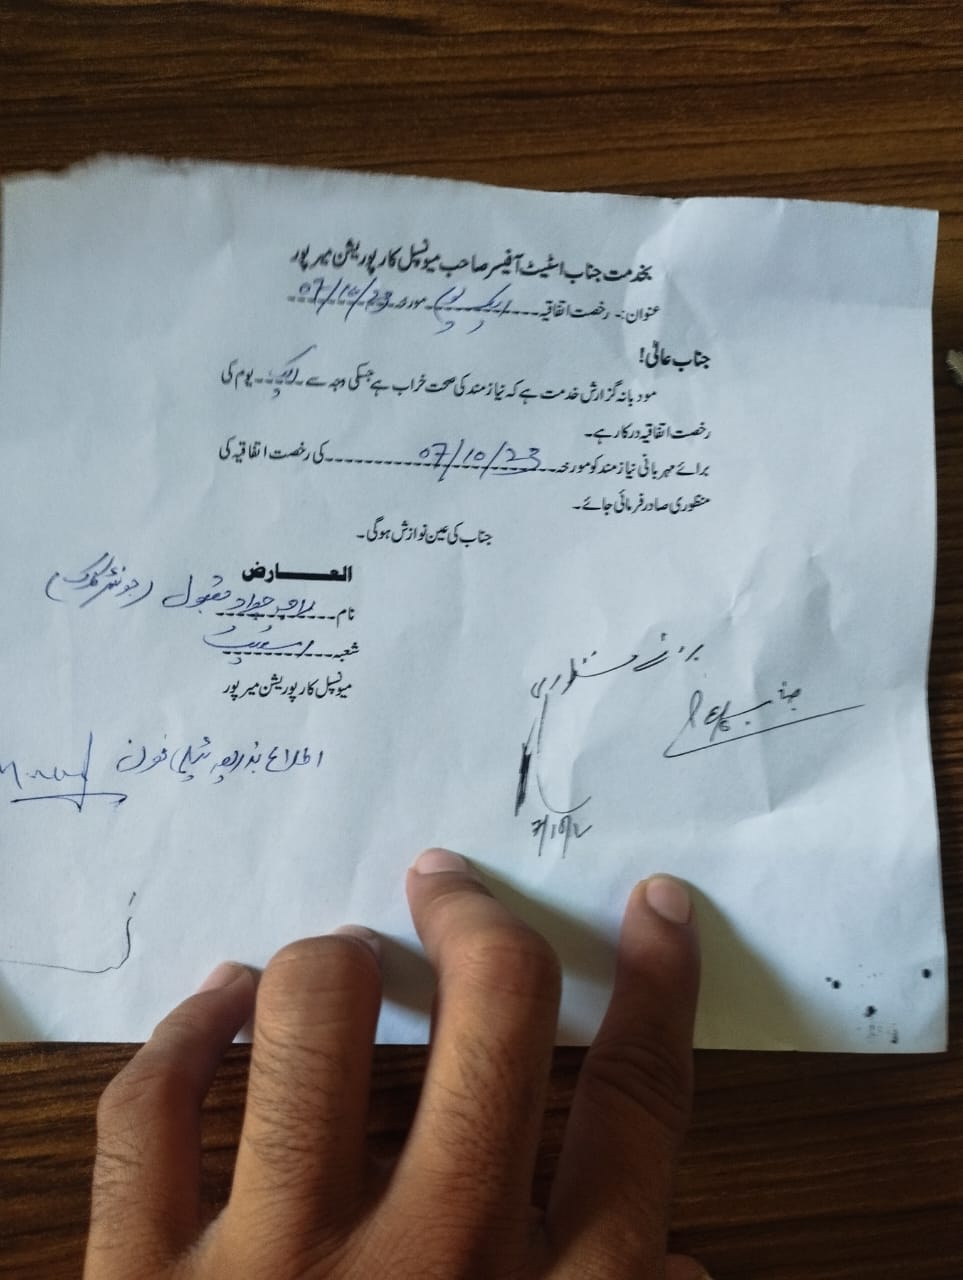 بخدمت جناب اسٹیٹ آفیسر صاحب میونسپل کارپوریشن میرپور
عنوان:۔ رخصت اتفاقیہ ایک یوم مورخہ 07/10/23
جناب عالی!
مودبانہ گزارش خدمت ہے کہ نیازمند کی صحت خراب ہے جسکی وجہ سے ایک یوم کی
رخصت اتفاقیہ درکار ہے۔
برائے مہربانی نیازمند کو مورخہ 07/10/23 کی رخصت اتفاقیہ کی
منظوری صادر فرمائی جائے۔
جناب کی عین نوازش ہوگی۔
العارض
نام جواد مقبول (جونیئر کلرک)
شعبہ اسٹیٹ
میونسپل کارپوریشن میرپور
اطلاع بذریعہ ٹیلی فون
برائے منظوری